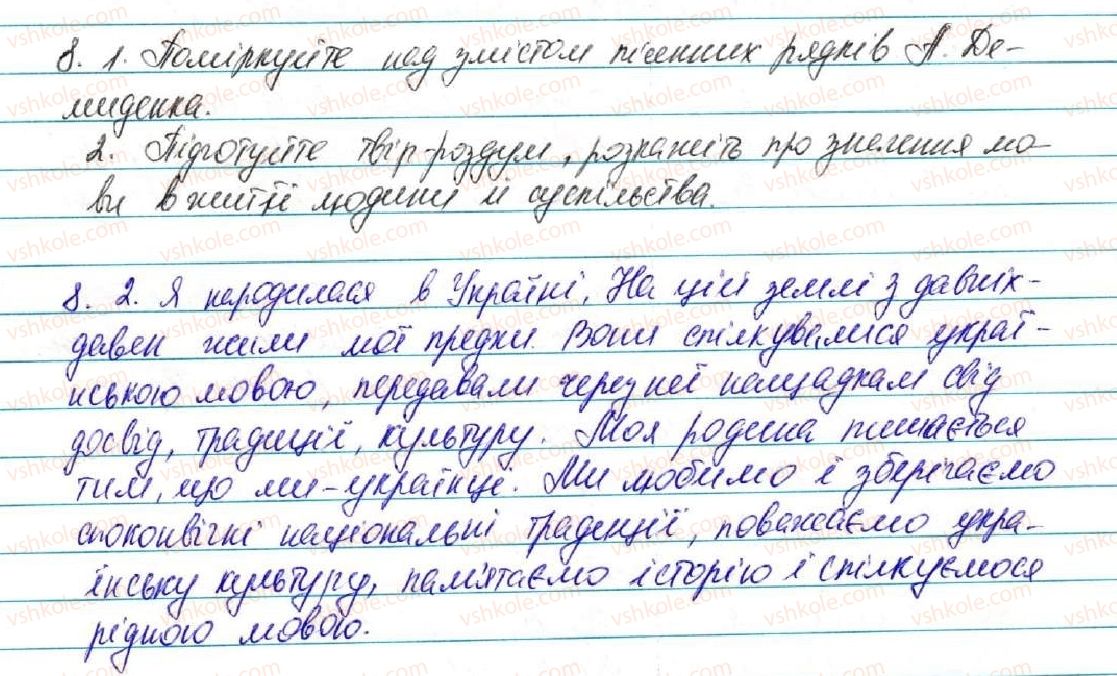 8. 1. Поміркуйте над змістом пісенних рядків А. Де-
миденка.
2. Підготуйте твір-роздум, розкажіть про значення мо-
ви в житті людини й суспільства.
8. 2. Я народилася в Україні. На цій землі з давніх-
давен жили мої предки. Вони спілкувалися украї-
нською мовою, передавали через неї нащадкам свій
досвід, традиції, культуру. Моя родина пишається
тим, що ми - українці. Ми любимо і зберігаємо
споконвічні національні традиції, поважаємо укра-
їнську культуру, пам'ятаємо історію і спілкуємося
рідною мовою.
vshkole.com